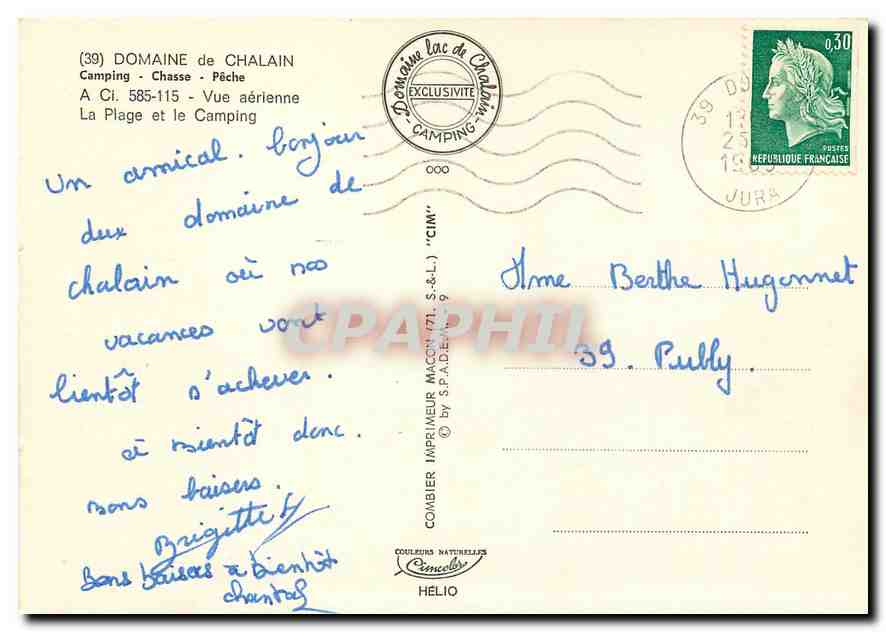 (39) DOMAINE de CHALAIN
Camping - Chasse - Pêche
A Ci. 585-115 - Vue aérienne
La Plage et le Camping
Un amical. bonjour
dux domaine de
chalain où nos
vacances vont
bientôt s'achever.
à bientôt donc.
Bons baisers.
Brigitte
Bons baisers a bientôt
chantal
Domaine lac de Chalain
EXCLUSIVITÉ
CAMPING
000
COMBIER IMPRIMEUR MACON (71. S.-&-L.) "CIM"
© by S.P.A.D.E.M. 9
COULEURS NATURELLES
Cimcolor
HÉLIO
0,30
POSTES
RÉPUBLIQUE FRANÇAISE
39 DO
25
JURA
Mme Berthe Hugonnet
39. Publy.
CPAPHIL